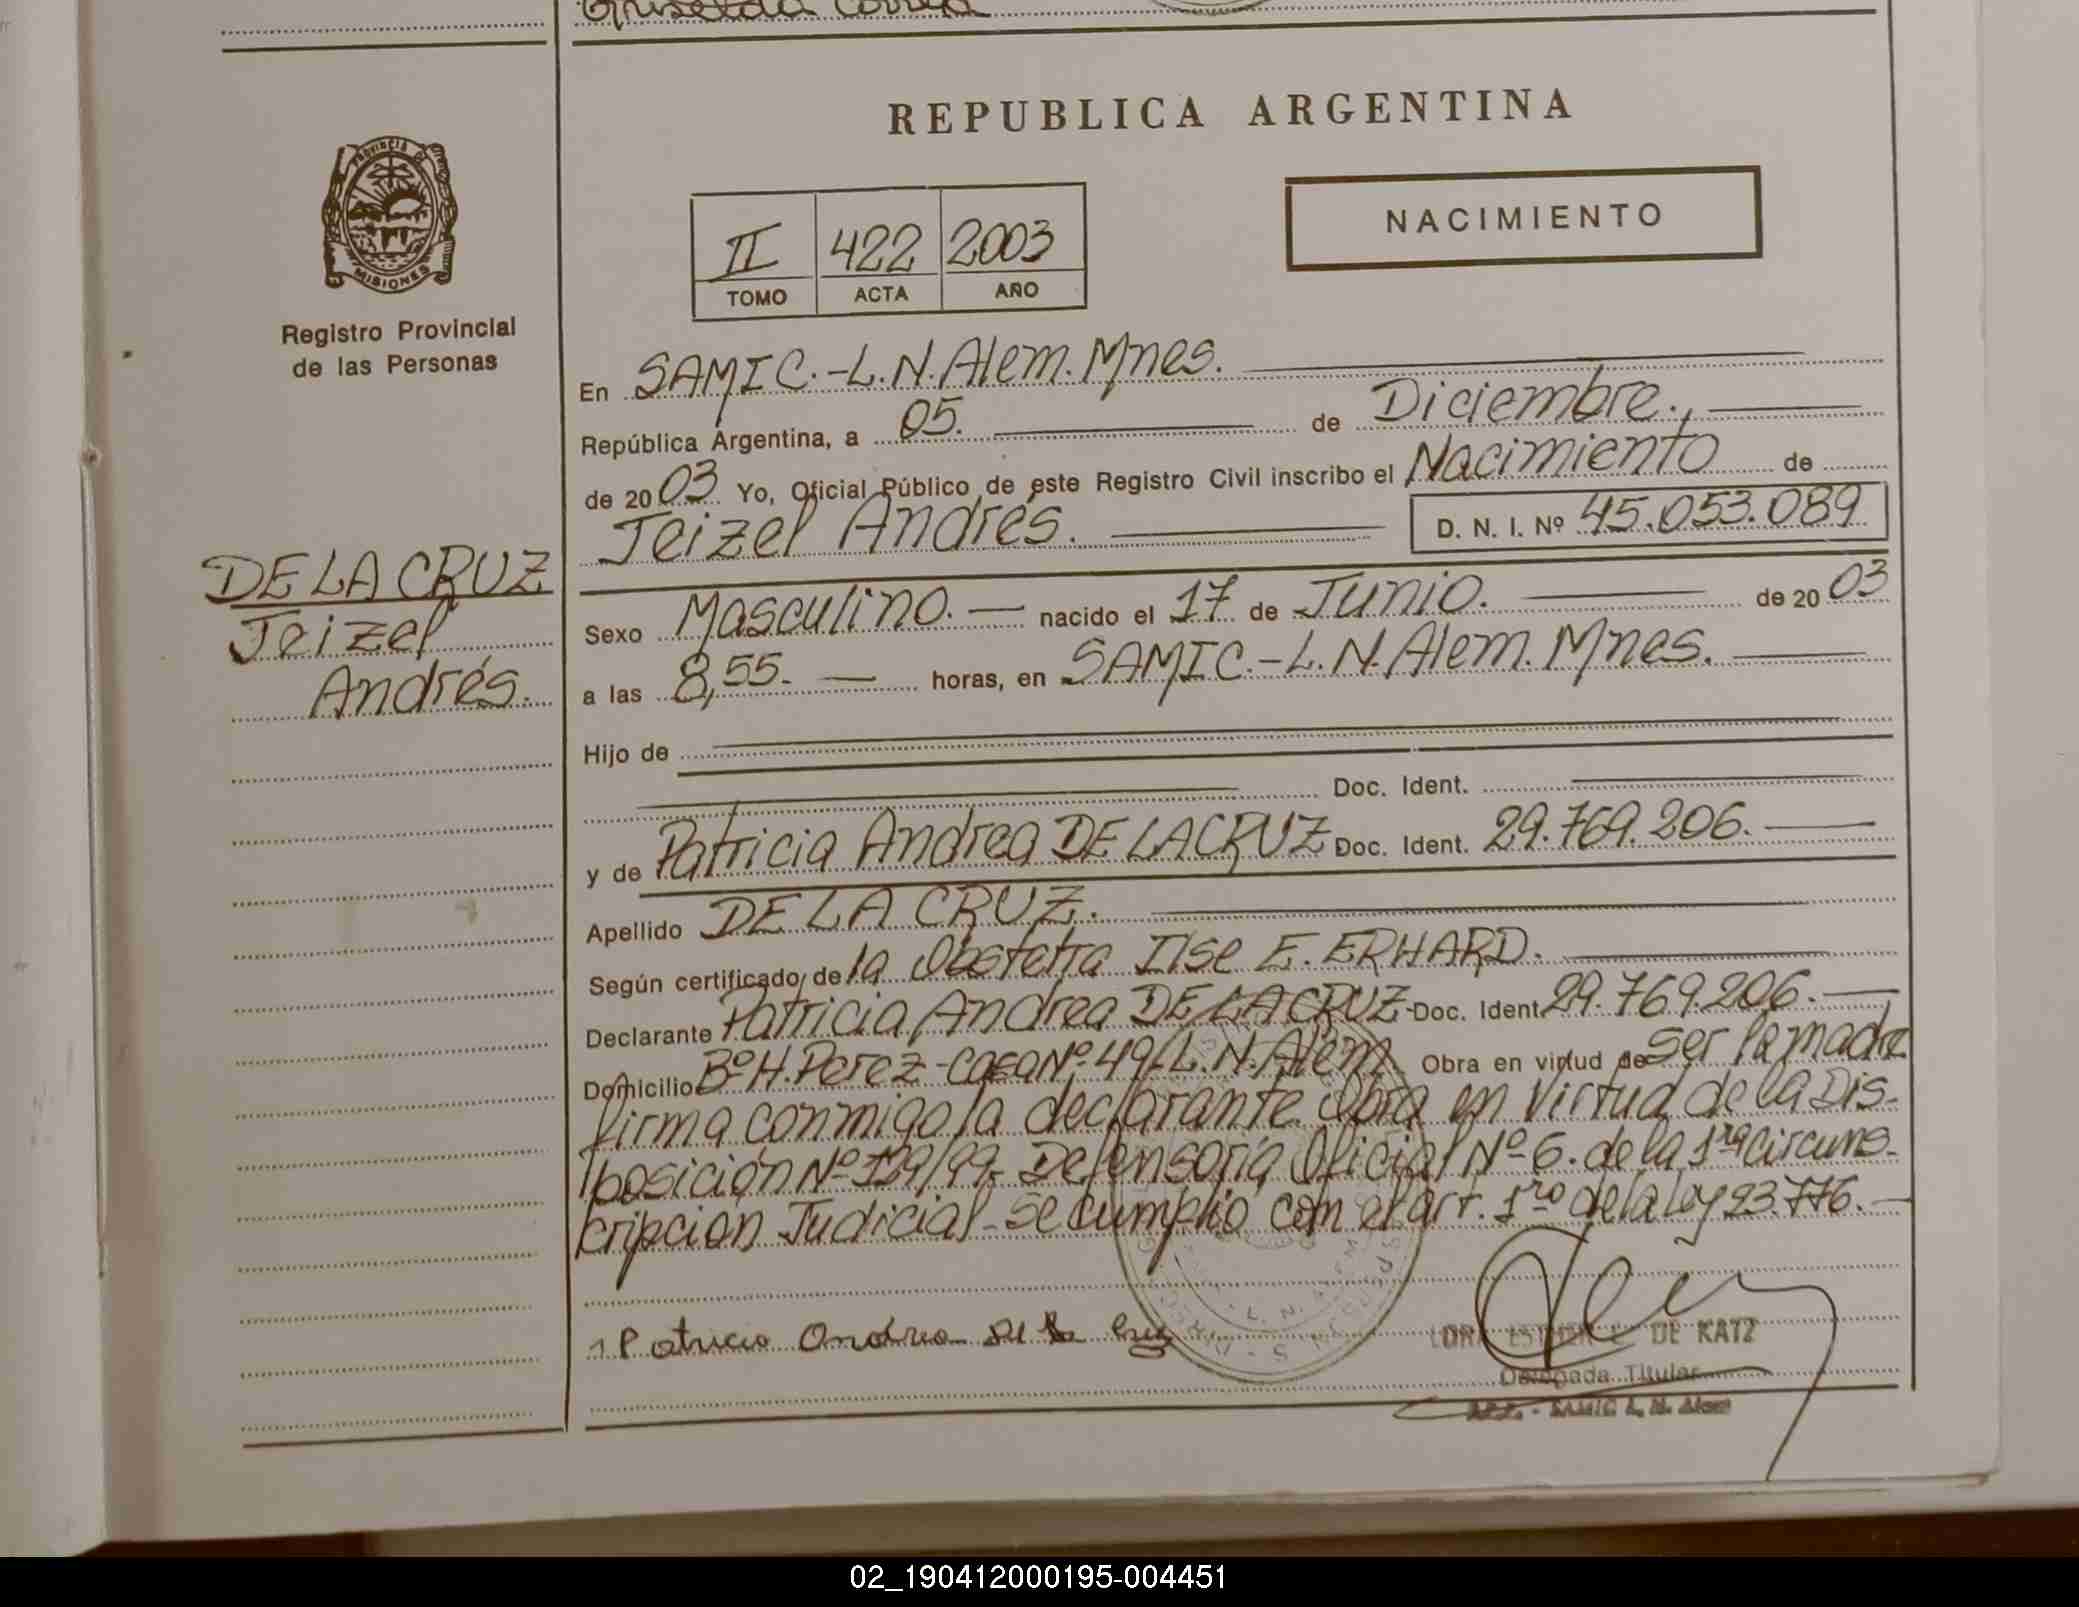 Griselda Correa
REPUBLICA ARGENTINA
PROVINCIA DE
MISIONES
Registro Provincial
de las Personas
II 422 2003
TOMO ACTA AÑO
NACIMIENTO
En SAMIC.-L.N.Alem.Mnes.
República Argentina, a 05. de Diciembre.,
de 2003 Yo, Oficial Público de este Registro Civil inscribo el Nacimiento de
Jeizel Andrés. D. N. I. Nº 45.053.089
DE LA CRUZ
Jeizel
Andrés.
Sexo Masculino. nacido el 17 de Junio. de 2003
a las 8,55. horas, en SAMIC.-L.N.Alem.Mnes.
Hijo de
Doc. Ident.
y de Patricia Andrea DE LA CRUZ Doc. Ident. 29.769.206.
Apellido DE LA CRUZ.
Según certificado de la Obstetra Ilse E. ERHARD.
Declarante Patricia Andrea DE LA CRUZ-Doc. Ident. 29.769.206.
Domicilio Bº H. Perez-Casa Nº 49-L.N.Alem Obra en virtud de ser la madre
firma conmigo la declarante. Obra en Virtud de la Dis-
posición Nº 139/99- Defensoría Oficial Nº 6. de la 1ra Circuns-
cripción Judicial-Se cumplió con el art. 1ro de la Ley 23.776.
Patricia Andrea De la Cruz
DRA. ESTHER L. DE KATZ
Delegada Titular
- SAMIC L. N. Alem
02_190412000195-004451